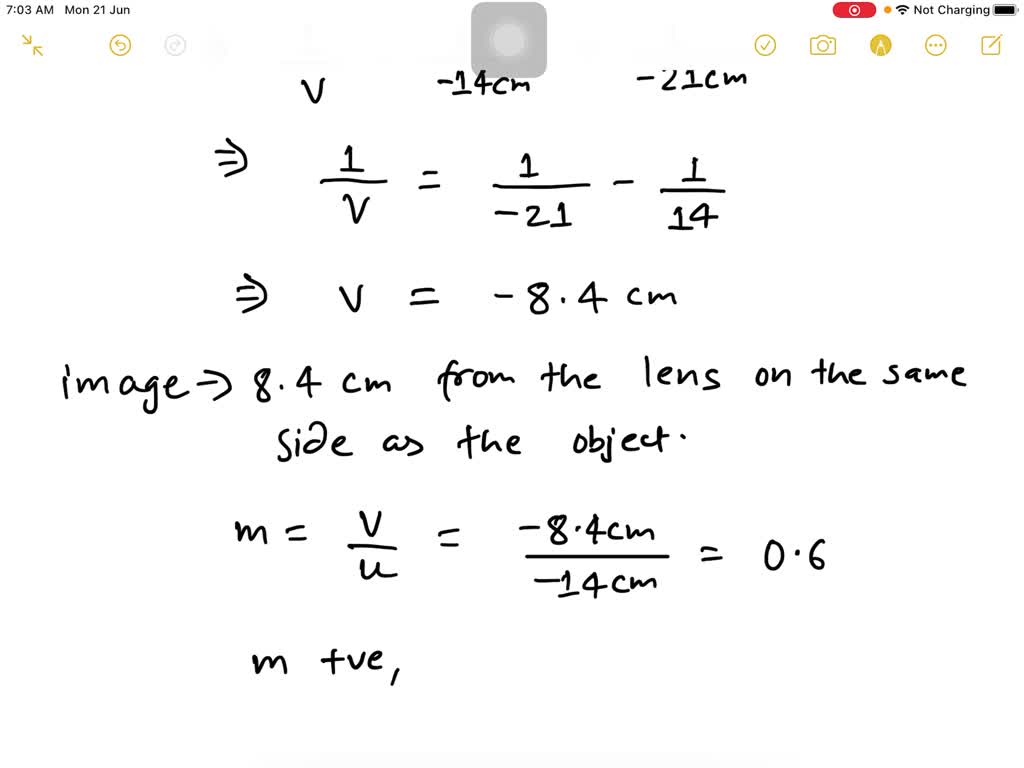 7:03 AM Mon 21 Jun Not Charging
V -14cm -21cm
⇒ 1/V = 1/-21 - 1/14
⇒ V = -8.4 cm
image → 8.4 cm from the lens on the same
side as the object.
m = V/u = -8.4cm/-14cm = 0.6
m +ve,